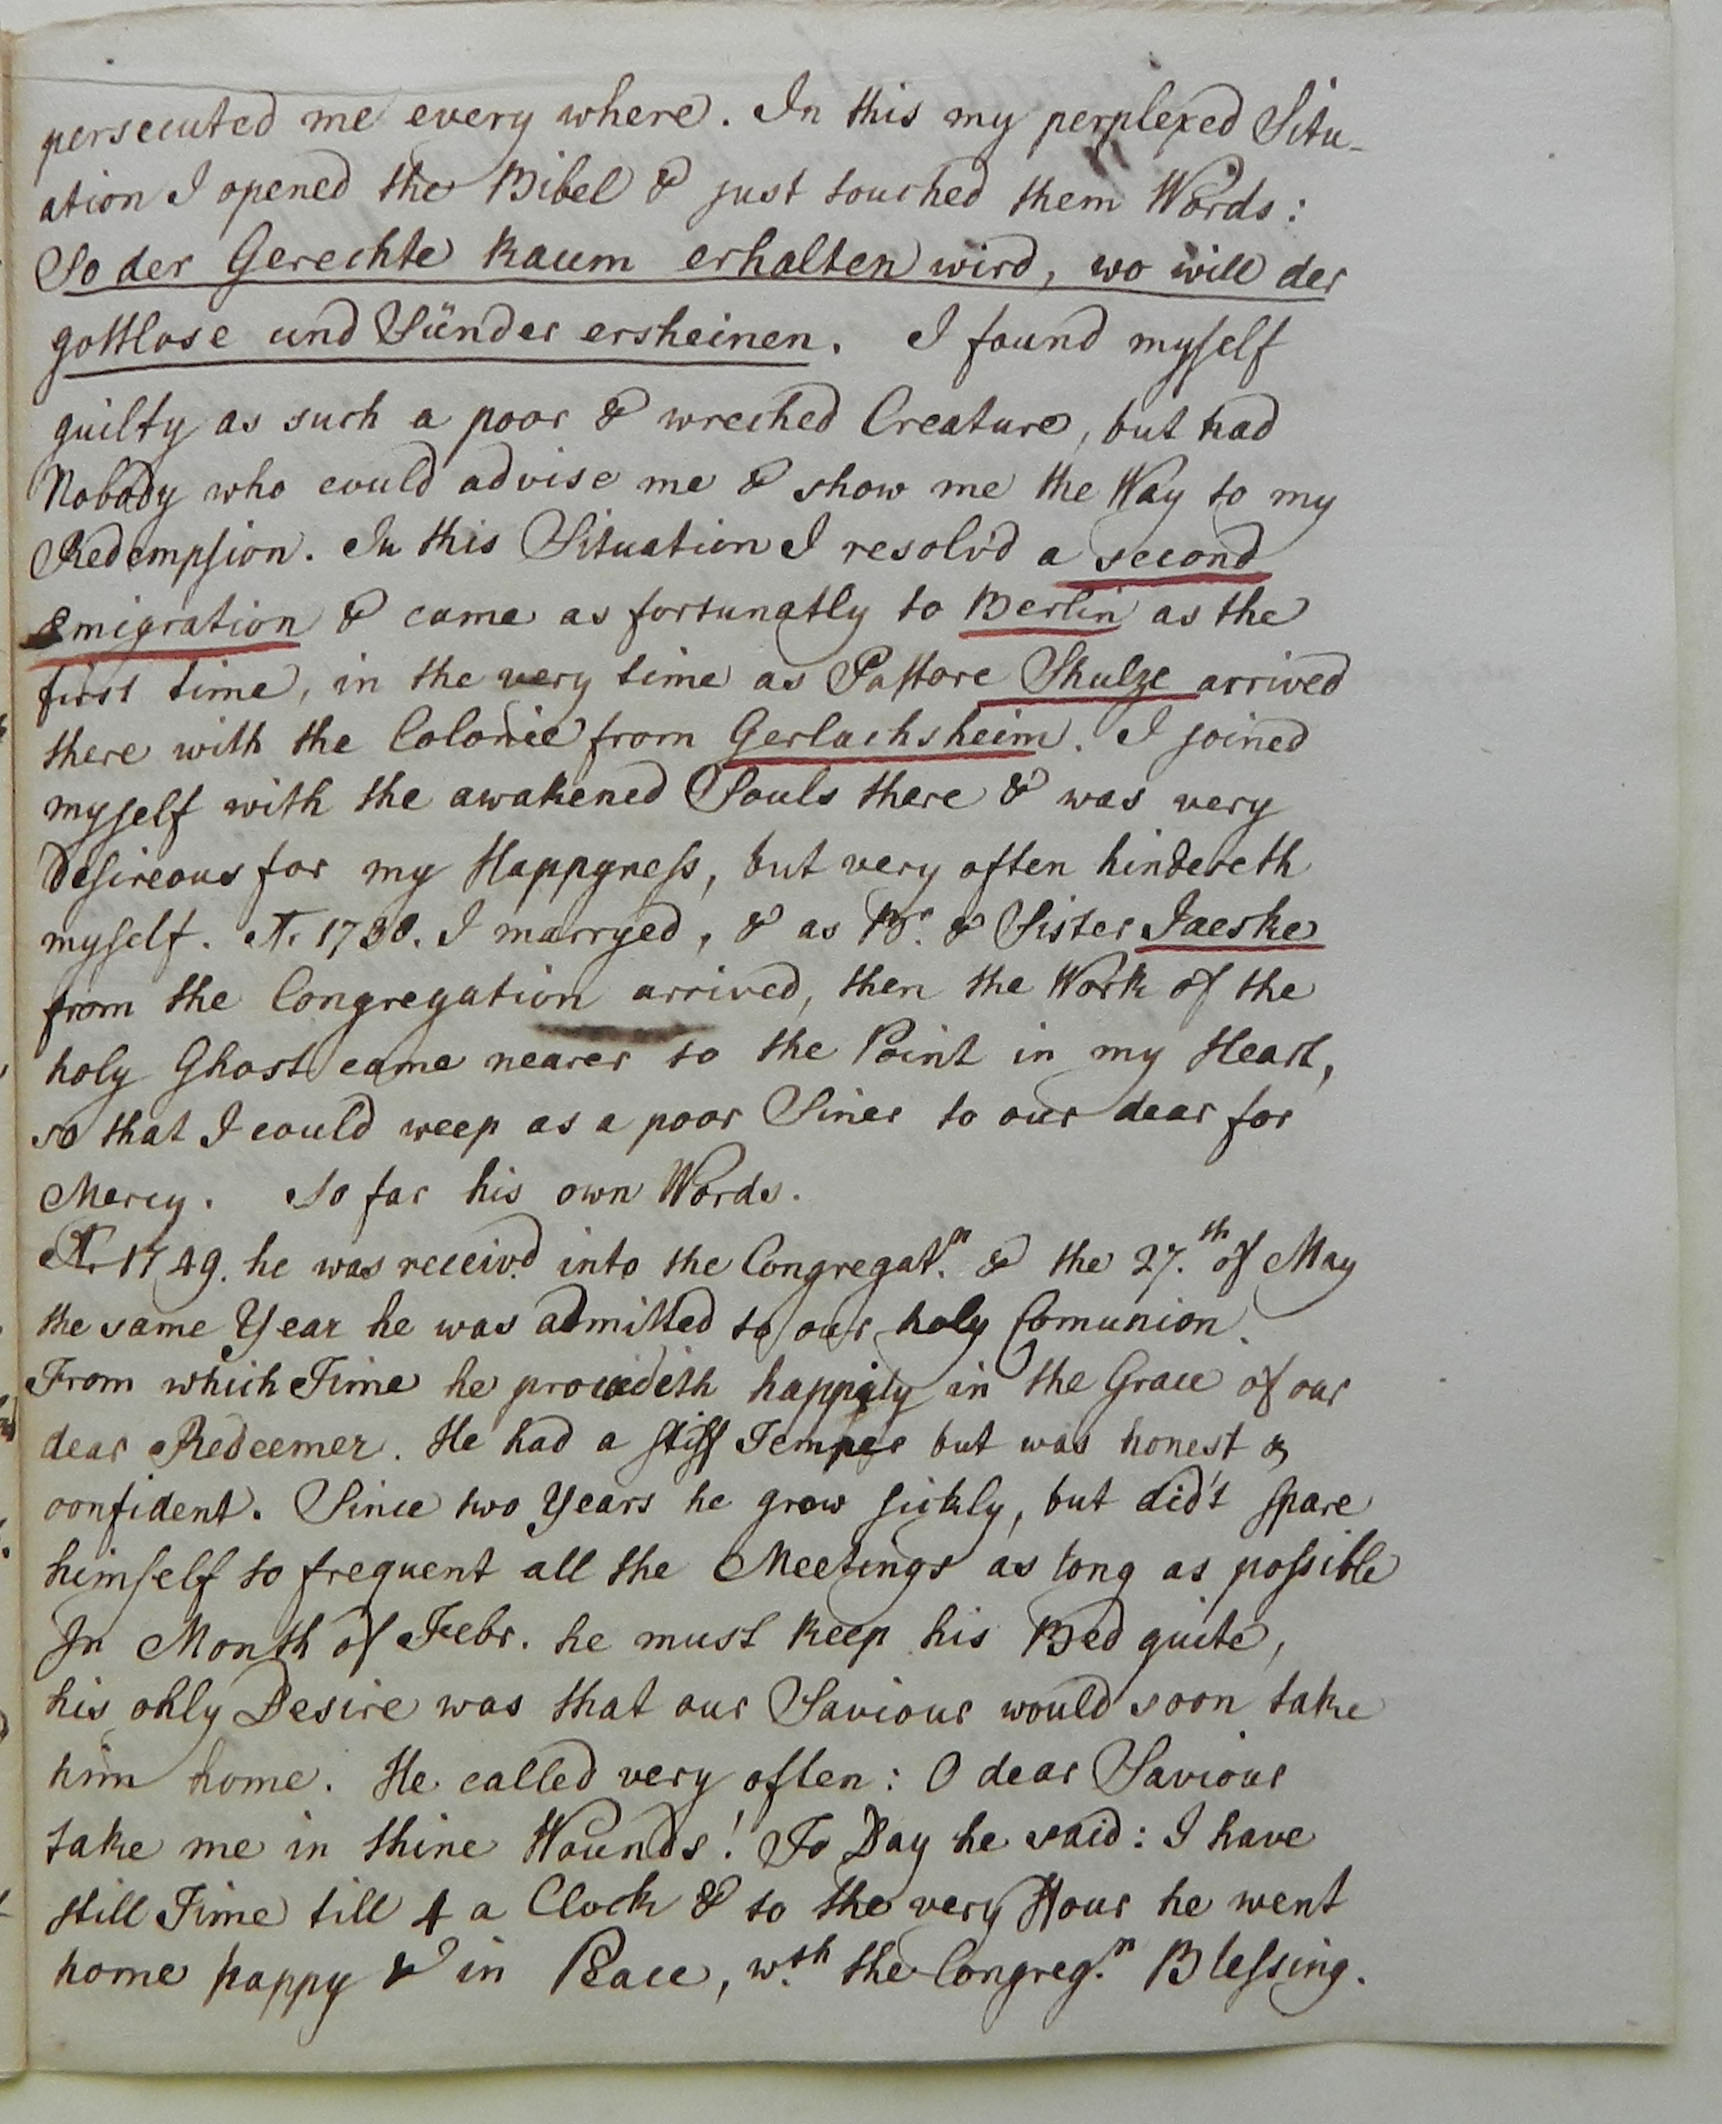 persecuted me every where. In this my perplexed Situ-
ation I opened the Bibel & just touched them Words:
So der Gerechte kaum erhalten wird, wo will der
gottlose und Sünder ersheinen. I found myself
guilty as such a poor & wreched Creature, but had
Nobody who could advise me & show me the Way to my
Redempsion. In this Situation I resolv'd a second
emigration & came as fortunatly to Berlin as the
first time, in the very time as Pastore Shulze arrived
there with the Colonie from Gerlachsheim. I joined
myself with the awakened Souls there & was very
desireous for my Happyness, but very often hindereth
myself. A. 1738. I marryed, & as Br. & Sister Jaeske
from the Congregation arrived, then the Work of the
holy Ghost came nearer to the Point in my Heart,
so that I could weep as a poor Siner to our dear for
Mercy. So far his own Words.
A. 1749. he was receivd into the Congregat.n & the 27.th of May
the same Year he was admitted to our holy Comunion.
From which Time he procedeth happily in the Grace of our
dear Redeemer. He had a stiff Temper but was honest &
confident. Since two Years he grow sickly, but did't spare
himself to frequent all the Meetings as long as possible
In Month of Febr. he must keep his Bed quite,
his only Desire was that our Saviour would soon take
him home. He called very often: O dear Saviour
take me in thine Wounds! To Day he said: I have
still Time till 4 a Clock & to the very Hour he went
home happy & in Peace, w.th the Congreg.n Blessing.